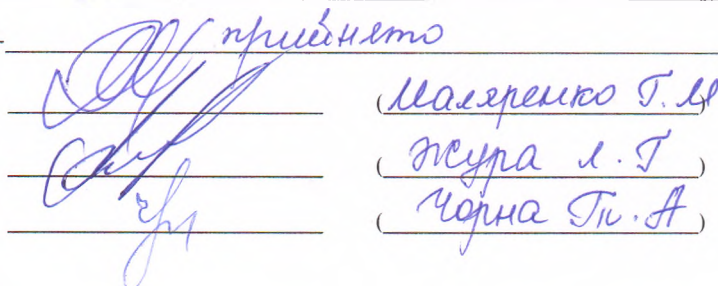 прийнято
(Маляренко Г.М)
(Жура Л.Г)
(Чорна Тп.А)